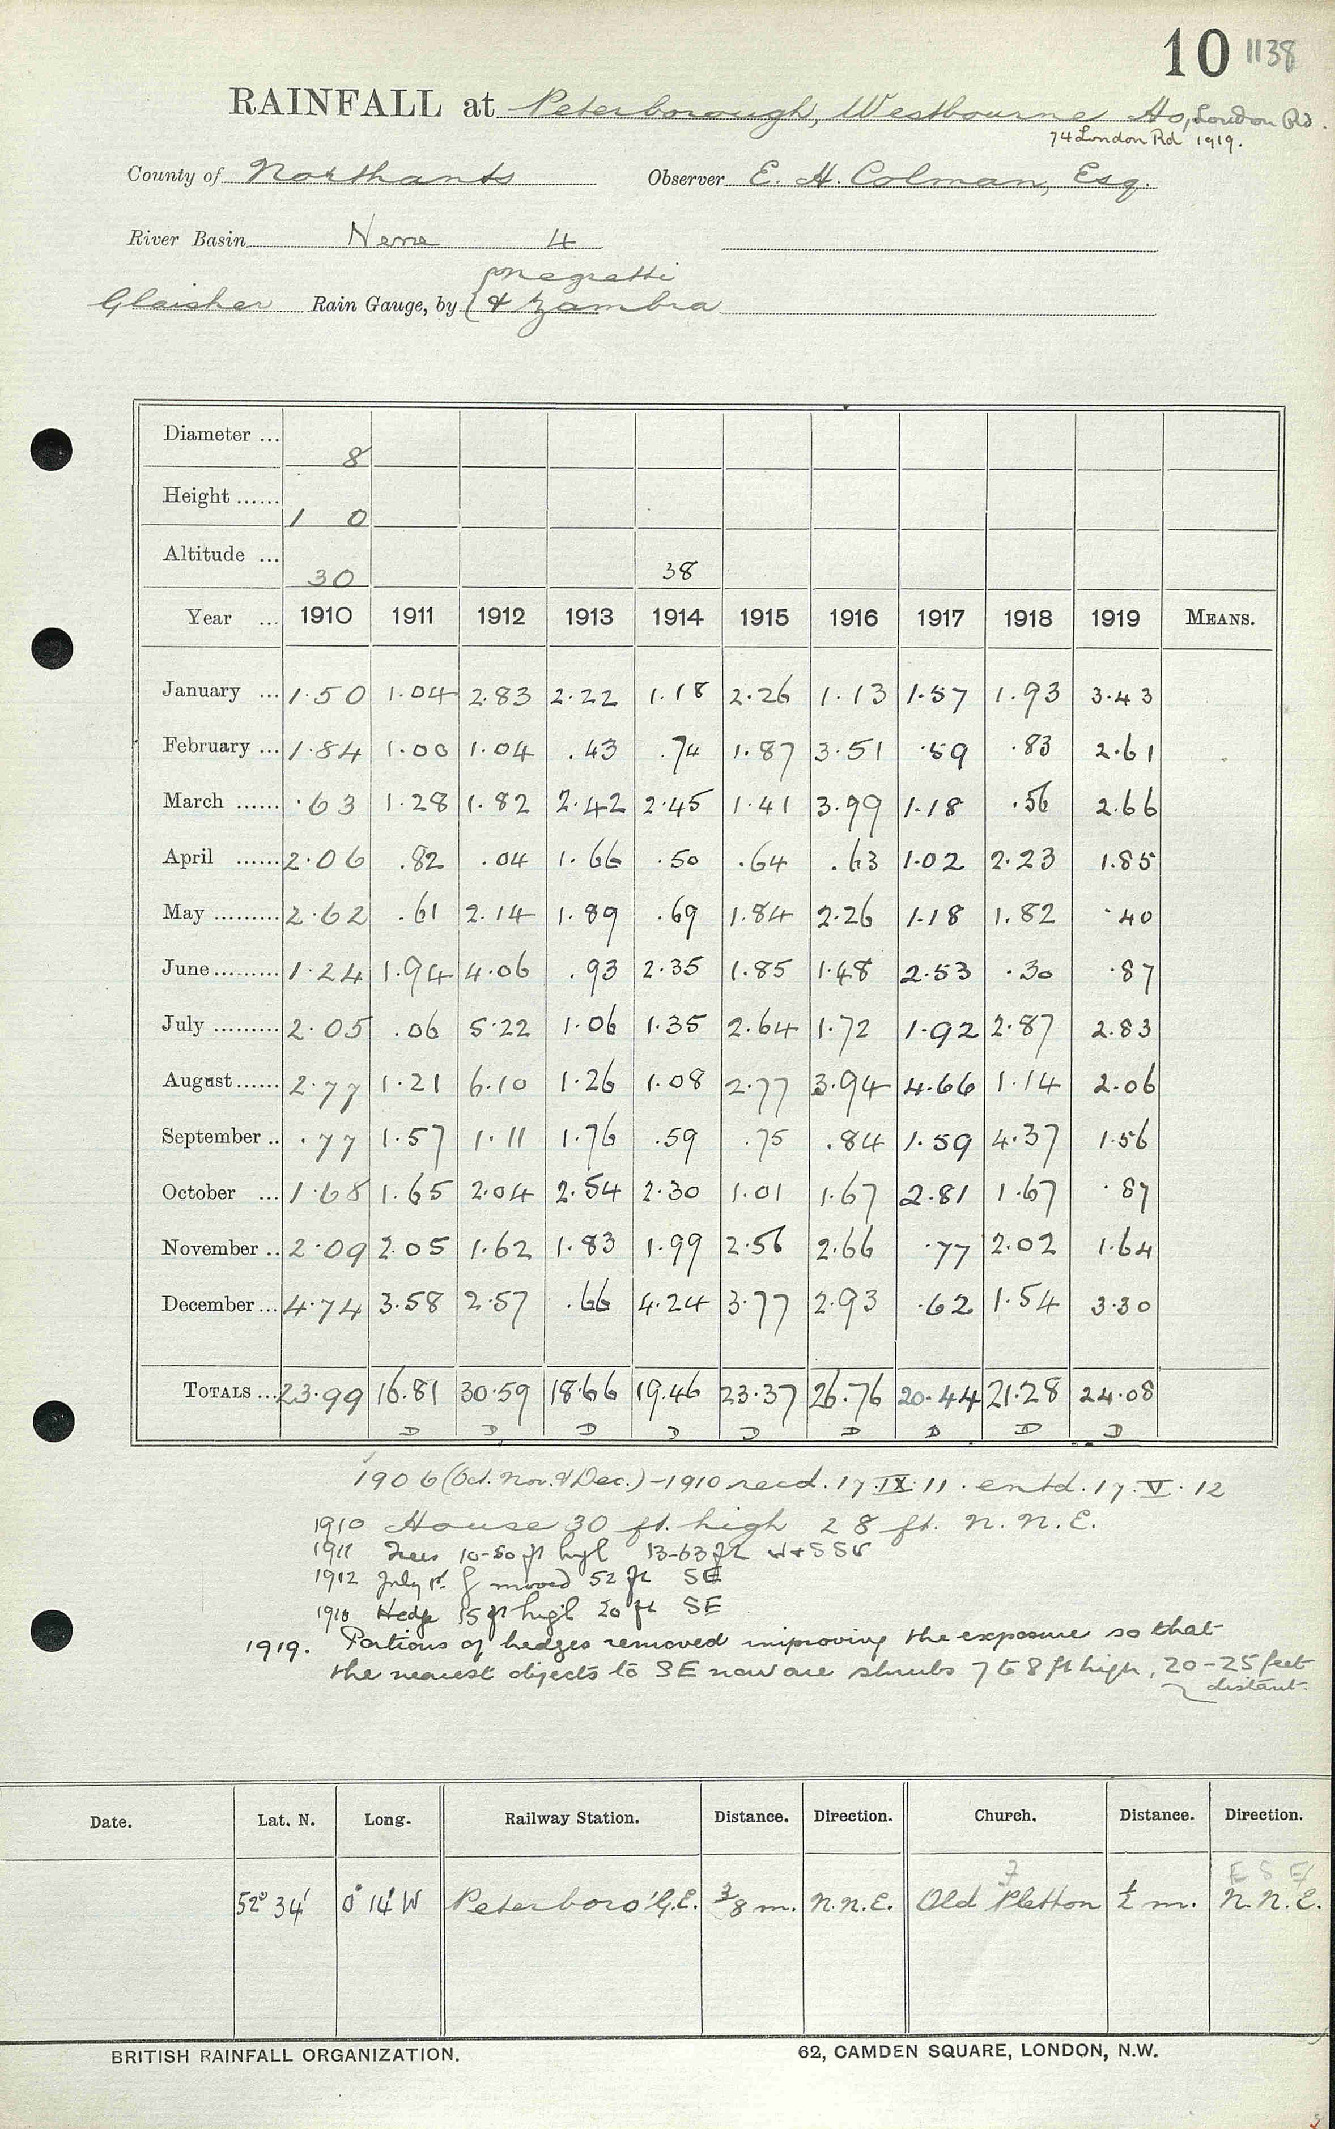 10 1138
RAINFALL at Peterborough, Westbourne Ho, London Rd.
74 London Rd 1919.
County of Northants Observer E. H. Colman, Esq.
River Basin Nene 4
Glaisher Rain Gauge, by { Negretti
& Zambra
Diameter ... 8
Height ...... 1 0
Altitude ... 30 38
Year ... 1910 1911 1912 1913 1914 1915 1916 1917 1918 1919 MEANS.
January ... 1.50 1.04 2.83 2.22 1.18 2.26 1.13 1.57 1.93 3.43
February ... 1.84 1.00 1.04 .43 .74 1.87 3.51 .59 .83 2.61
March ...... .63 1.28 1.82 2.42 2.45 1.41 3.99 1.18 .56 2.66
April ...... 2.06 .82 .04 1.66 .50 .64 .63 1.02 2.23 1.85
May ......... 2.62 .61 2.14 1.89 .69 1.84 2.26 1.18 1.82 .40
June ......... 1.24 1.94 4.06 .93 2.35 1.85 1.48 2.53 .30 .87
July ......... 2.05 .06 5.22 1.06 1.35 2.64 1.72 1.92 2.87 2.83
August ...... 2.77 1.21 6.10 1.26 1.08 2.77 3.94 4.66 1.14 2.06
September .. .77 1.57 1.11 1.76 .59 .75 .84 1.59 4.37 1.56
October ... 1.68 1.65 2.04 2.54 2.30 1.01 1.67 2.81 1.67 .87
November .. 2.09 2.05 1.62 1.83 1.99 2.56 2.66 .77 2.02 1.64
December ... 4.74 3.58 2.57 .66 4.24 3.77 2.93 .62 1.54 3.30
TOTALS ... 23.99 16.81 30.59 18.66 19.46 23.37 26.76 20.44 21.28 24.08
D D D D D D D D D
1906 (Oct. Nov. & Dec.) - 1910 recd. 17.IX.11. entd. 17.V.12
1910 House 30 ft. high 28 ft. N.N.E.
1911 Trees 10-50 ft high 13-63 ft W + SSW
1912 July 1st. g moved 52 ft SE
1910 Hedge 15 ft high 20 ft SE
1919. Portions of hedges removed improving the exposure so that
the nearest objects to SE now are shrubs 7 to 8 ft high, 20-25 feet
distant.
Date. Lat. N. Long. Railway Station. Distance. Direction. Church. Distance. Direction.
? E S E
52° 34' 0° 14' W Peterboro' G.E. 3/8 m. N.N.E. Old Fletton 1/2 m. N.N.E.
BRITISH RAINFALL ORGANIZATION. 62, CAMDEN SQUARE, LONDON, N.W.